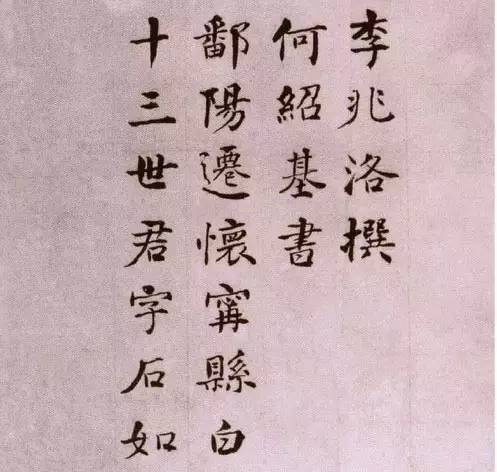 李兆洛撰
何紹基書
鄱陽遷懷寗縣白
十三世君字石如